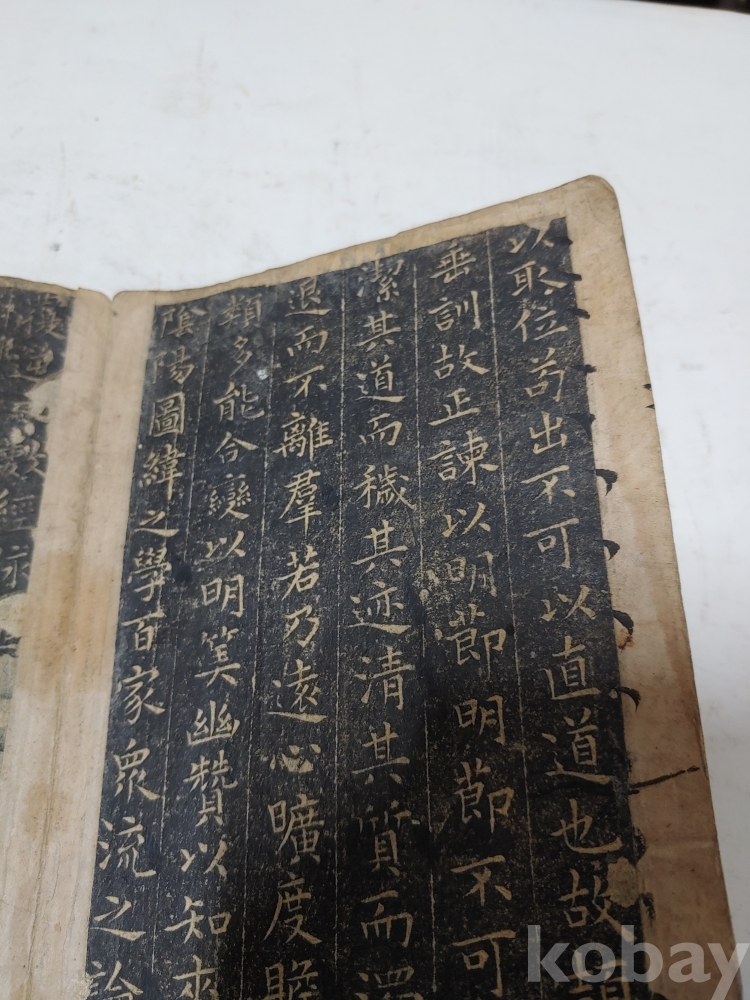 以取位苟出不可以直道也故頡
垂訓故正諫以明莭明莭不可
潔其道而穢其迹清其質而濁
退而不離羣若乃遠心曠度贍
類多能合變以明筭幽贊以知來
隂陽圖緯之學百家衆流之論
覆逆之數經脉
kobay